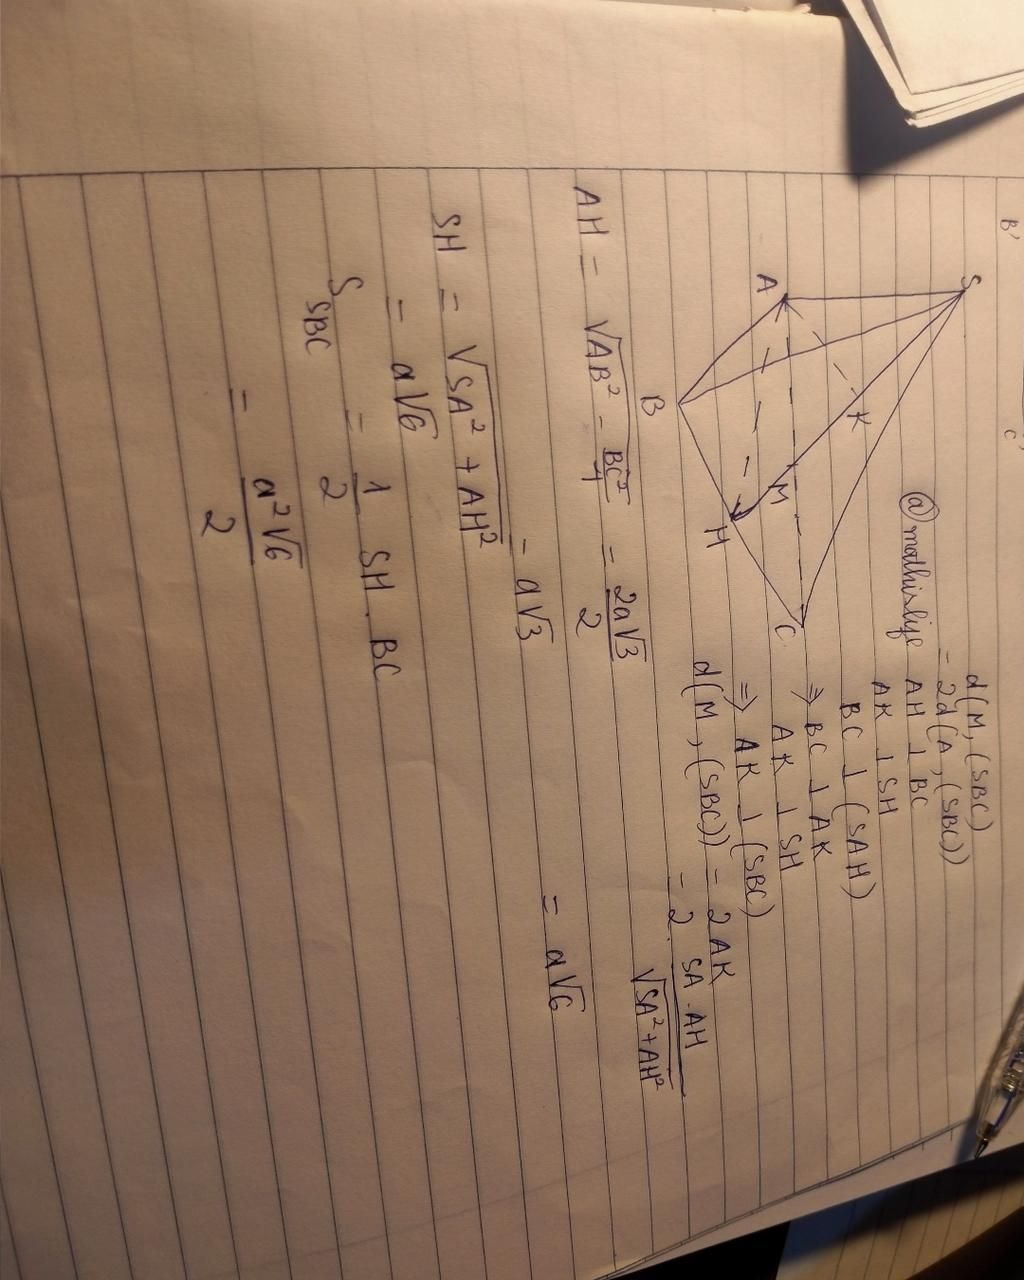 B'
C'
S
A
K
M
B
H
C
@mathislife
d(M, (SBC)
= 2d(A, (SBC))
AH ⊥ BC
AK ⊥ SH
BC ⊥ (SAH)
⇒ BC ⊥ AK
AK ⊥ SH
⇒ AK ⊥ (SBC)
d(M, (SBC)) = 2AK
= 2. SA . AH / √(SA² + AH²)
= a√6
AH = √(AB² - BC²/4) = 2a√3/2
= a√3
SH = √(SA² + AH²)
= a√6
S_SBC = 1/2 SH . BC
= a²√6/2